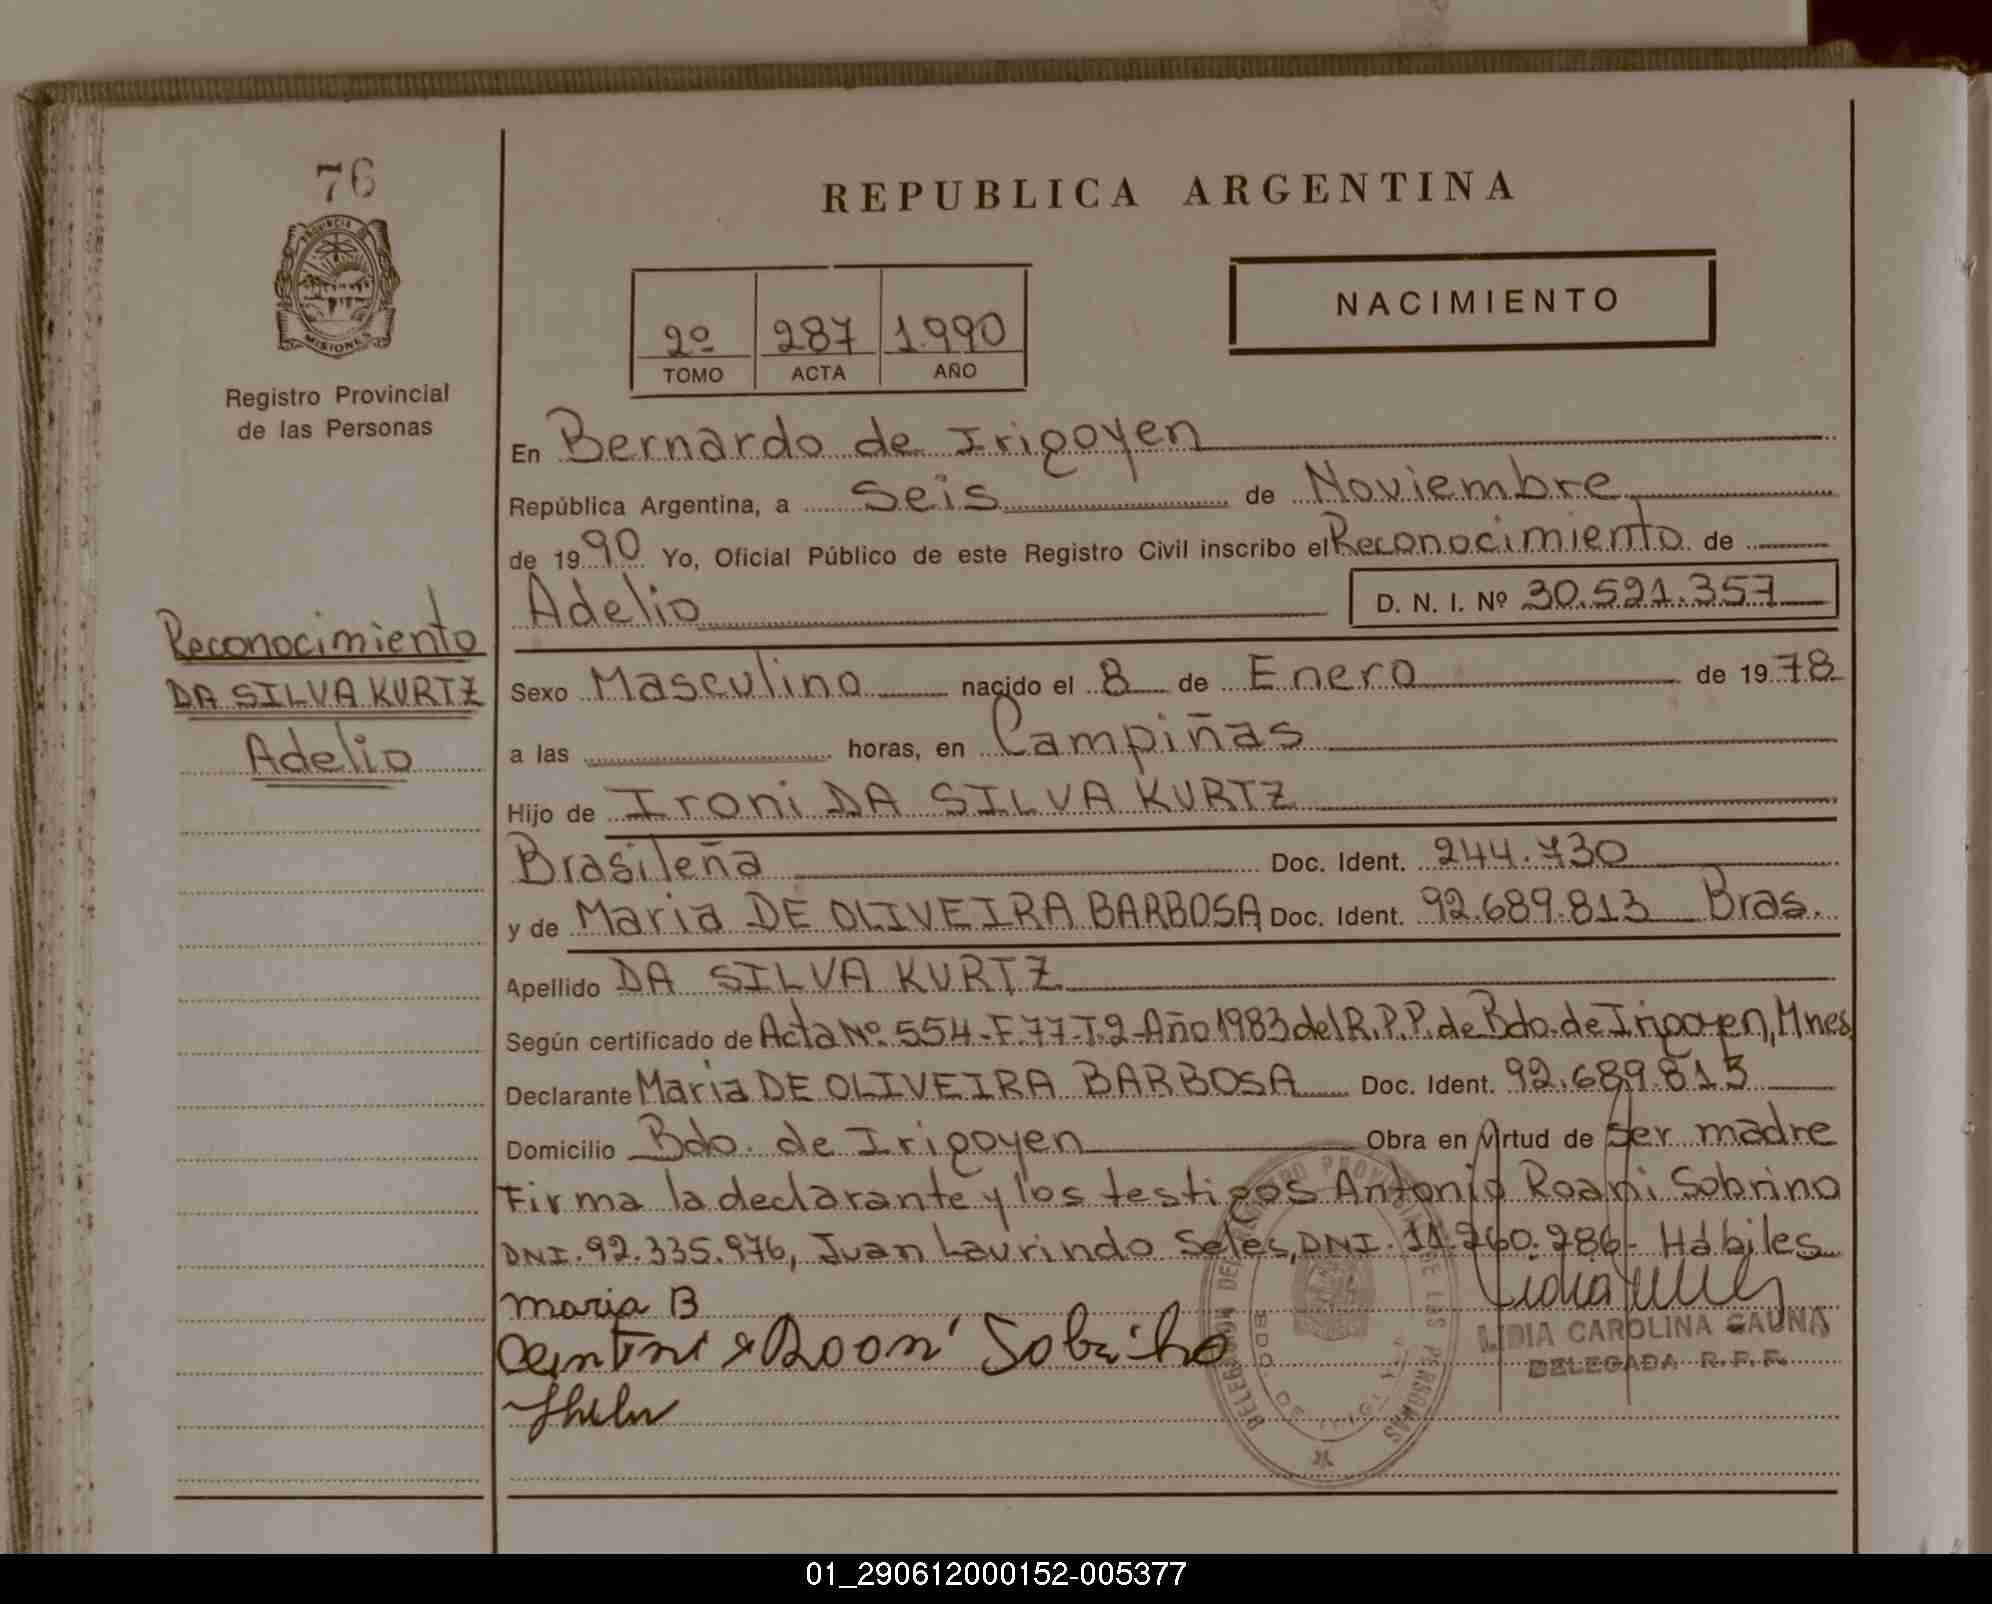 76
PROVINCIA DE
MISIONES
Registro Provincial
de las Personas
Reconocimiento
DA SILVA KURTZ
Adelio
REPUBLICA ARGENTINA
2º 287 1.990
TOMO ACTA AÑO
NACIMIENTO
En Bernardo de Irigoyen
República Argentina, a Seis de Noviembre
de 1990 Yo, Oficial Público de este Registro Civil inscribo el Reconocimiento de
Adelio D. N. I. Nº 30.521.357
Sexo Masculino nacido el 8 de Enero de 1978
a las horas, en Campiñas
Hijo de Ironi DA SILVA KURTZ
Brasileña Doc. Ident. 244.730
y de Maria DE OLIVEIRA BARBOSA Doc. Ident. 92.689.813 Bras.
Apellido DA SILVA KURTZ
Según certificado de Acta Nº 554-F.77-T.2-Año 1983 del R.P.P. de Bdo. de Irigoyen, Mnes.
Declarante Maria DE OLIVEIRA BARBOSA Doc. Ident. 92.689.813
Domicilio Bdo. de Irigoyen Obra en virtud de Ser madre
Firma la declarante y los testigos Antonio Roani Sobrino
DNI. 92.335.976, Juan Laurindo Seles, DNI. 11.260.286- Hábiles
maria B
Sobrinho
LIDIA CAROLINA GAUNA
DELEGADA R.P.P.
01_290612000152-005377